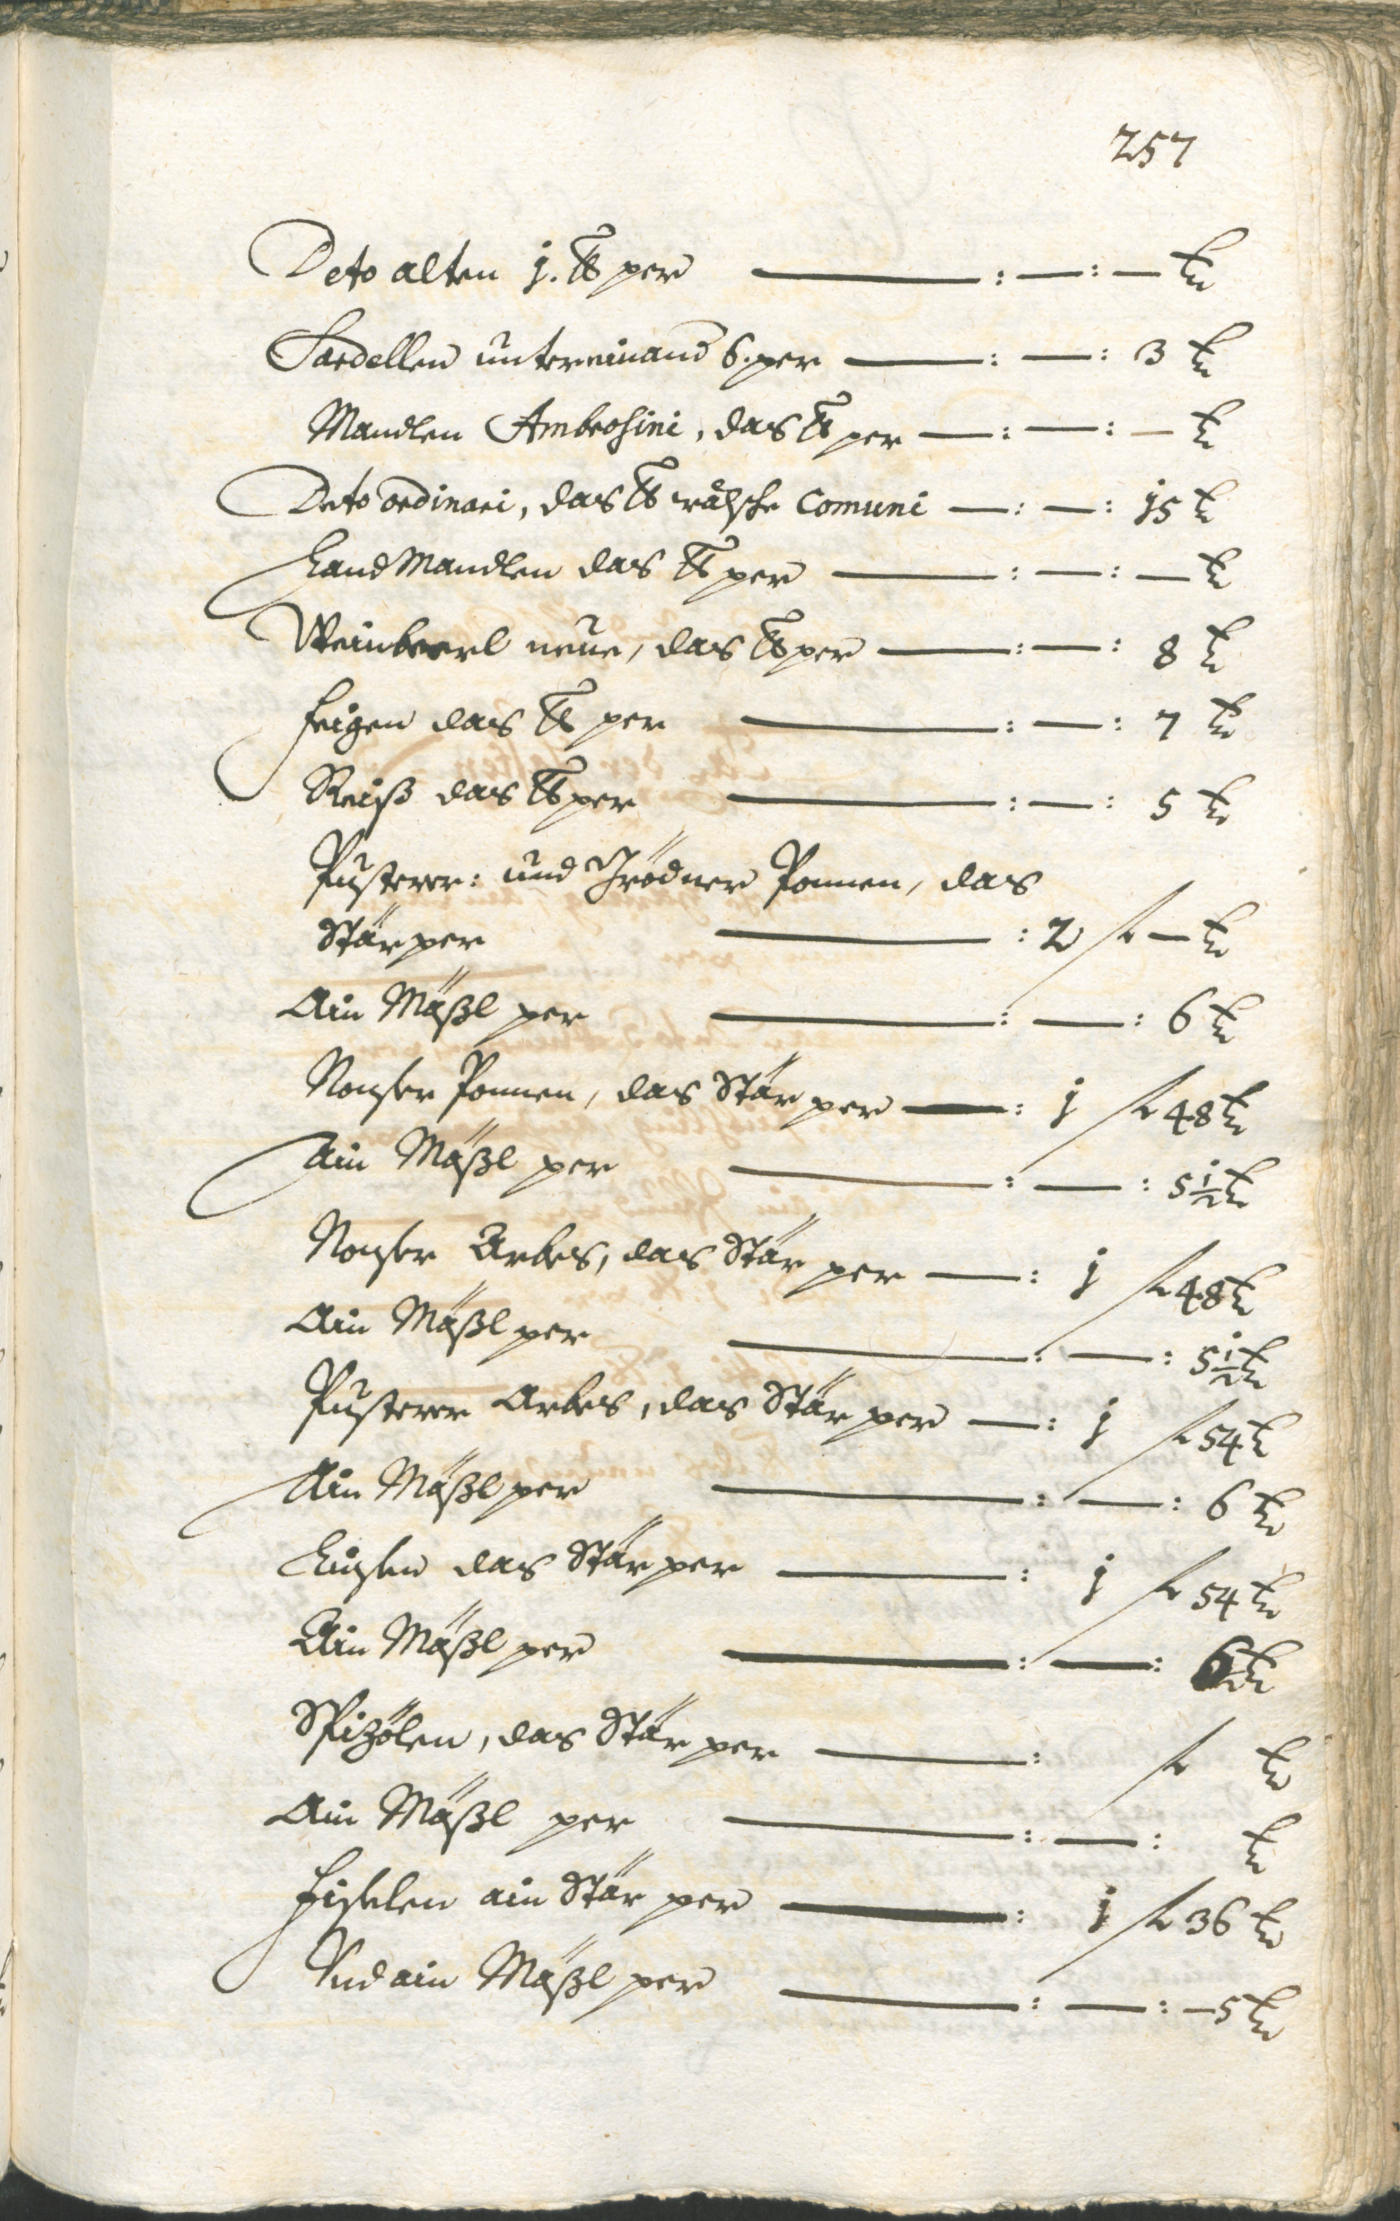 257
Deto alten j. ℔ per — : — : — kr
Sardellen untereinand 6. per — : — : 3 kr
Mandlen Ambrosini, das ℔ per — : — : — kr
Deto ordinari, das ℔ wälsche Comuni — : — : 15 kr
Land Mandlen das ℔ per — : — : — kr
Weinbeerl neue, das ℔ per — : — : 8 kr
Feigen das ℔ per — : — : 7 kr
Reiß das ℔ per — : — : 5 kr
Pusterer: und Grödner Ponnen, das
Stär per — : 2 f — kr
Ain Mäßl per — : — : 6 kr
Nonser Ponnen, das Stär per — : j f 48 kr
Ain Mäßl per — : — : 5 1/2 kr
Nonser Arbes, das Stär per — : j f 48 kr
Ain Mäßl per — : — : 5 1/2 kr
Pusterer Arbes, das Stär per — : j f 54 kr
Ain Mäßl per — : — : 6 kr
Linsen das Stär per — : j f 54 kr
Ain Mäßl per — : — : 6 kr
Spizölen, das Stär per — : f kr
Ain Mäßl per — : — : kr
Fiselen ain Stär per — : j f 36 kr
Und ain Mäßl per — : — : — 5 kr